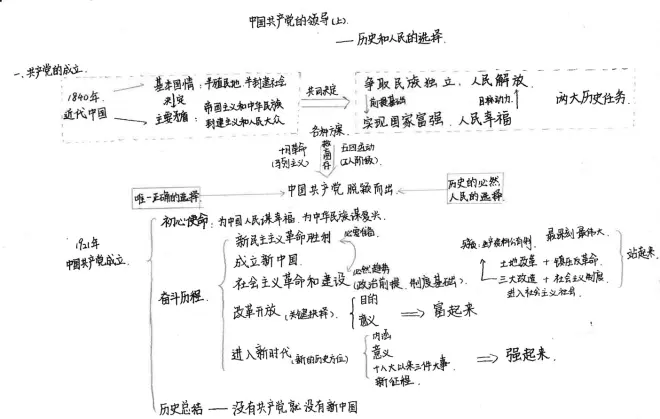 中国共产党的领导(上)
——历史和人民的选择
一.共产党的成立
1840年
近代中国
基本国情:半殖民地 半封建社会
决定
主要矛盾:帝国主义和中华民族
封建主义和人民大众
共同决定
争取民族独立,人民解放
前提基础
目标动力
实现国家富强,人民幸福
两大历史任务
各种方案
十月革命
(马列主义)
五四运动
(工人阶级)
唯一正确的选择
中国共产党脱颖而出
历史的必然
人民的选择
1921年
中国共产党成立
初心使命:为中国人民谋幸福 为中华民族谋复兴
奋斗历程
新民主主义革命胜利
成立新中国
社会主义革命和建设
(政治前提、制度基础)
必然趋势
最深刻最伟大
土地改革 + 镇压反革命
三大改造 + 社会主义制度
进入社会主义社会
站起来
改革开放(关键抉择)
目的
意义
富起来
进入新时代(新的历史方位)
内涵
意义
十八大以来三件大事
新征程
强起来
历史总结——没有共产党就没有新中国